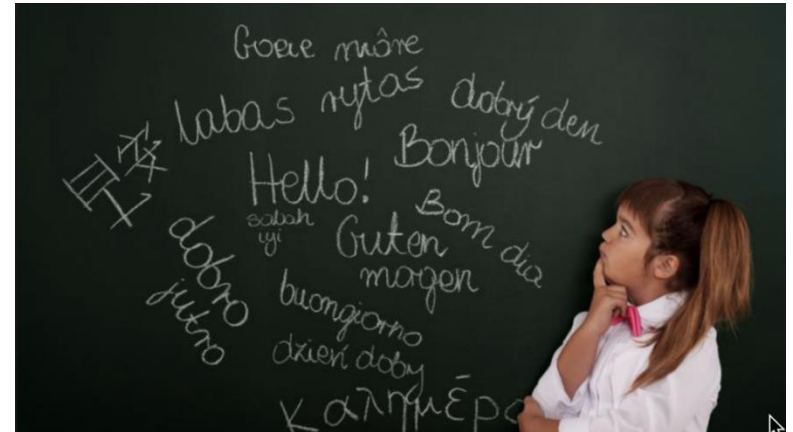 Goeie môre
labas rytas
dobrý den
Bonjour
Hello!
sabah
iyi
Guten
morgen
Bom dia
dobro
jutro
buongiorno
dzień doby
Καλημέρα